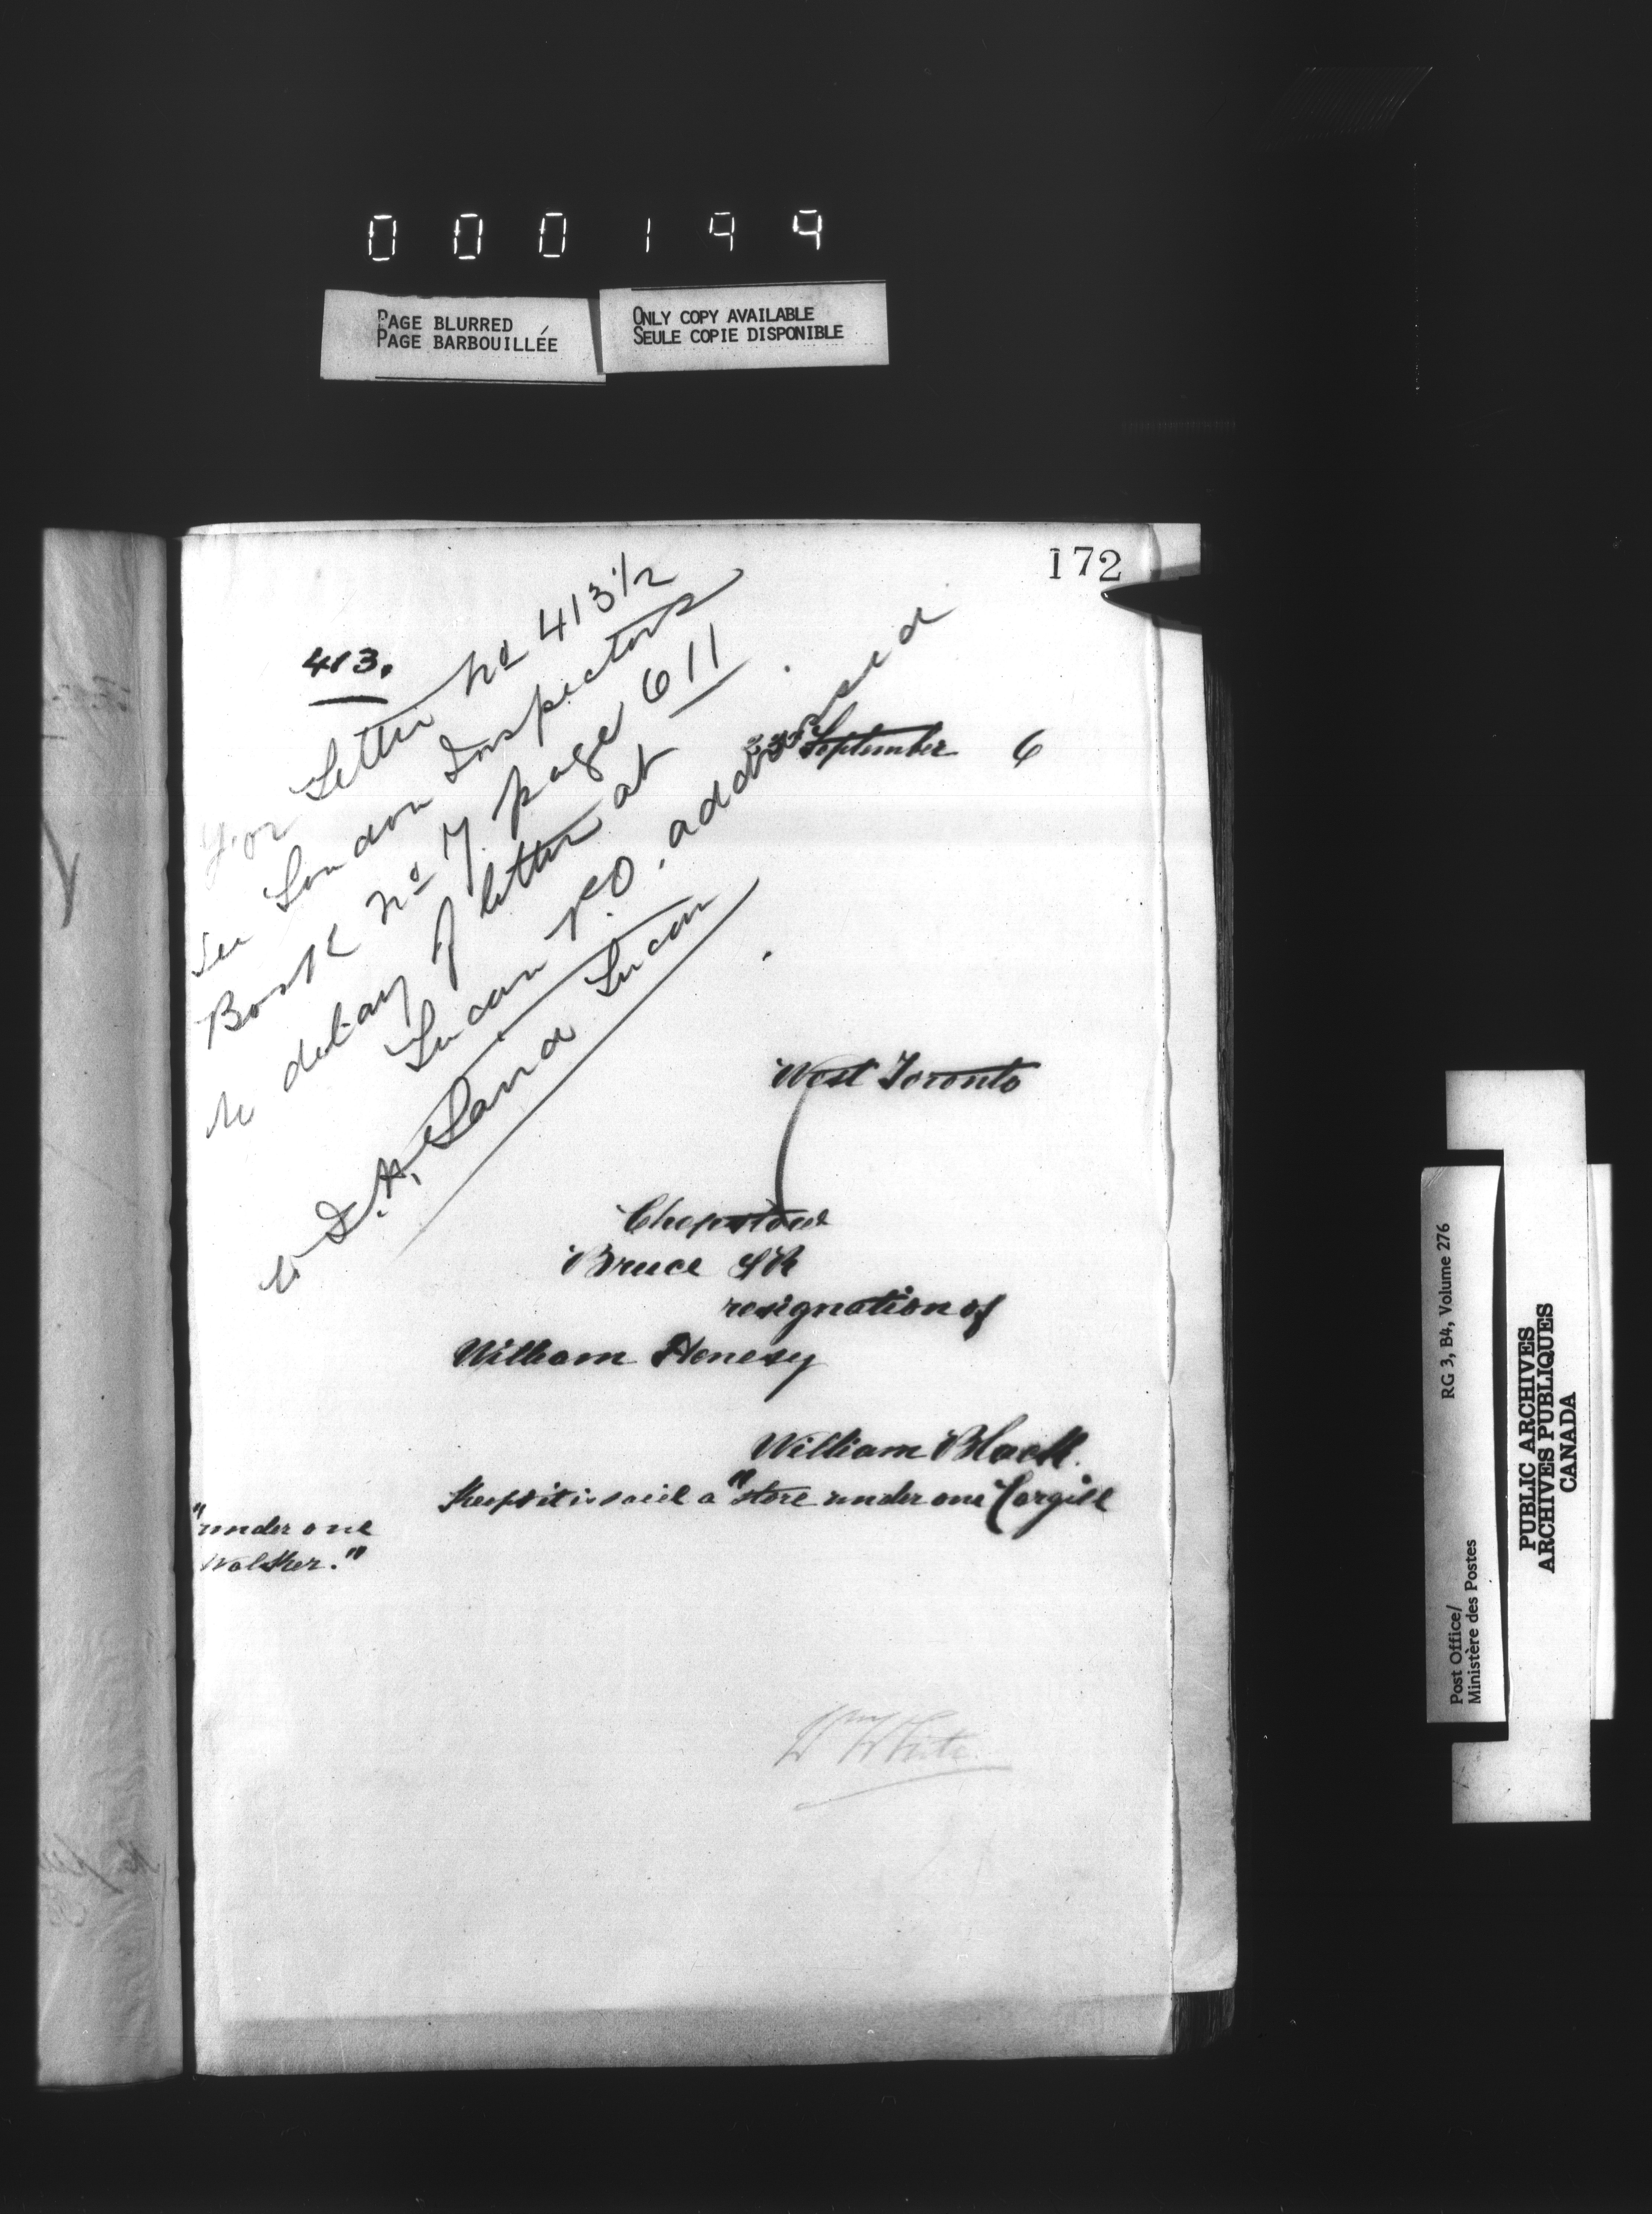 000199
PAGE BLURRED
PAGE BARBOUILLÉE
ONLY COPY AVAILABLE
SEULE COPIE DISPONIBLE
172
413.
For Letter No 413 1/2
See London Inspectors
Book No 7 page 611
re delay of letter at
Lucan P.O. addressed
to Lucan
September 6
West Toronto
Chepstow
Bruce SR
resignation of
William Henesy
William Black
Keeps it is said a "store under one Cargill
"under one
Walker."
Wm White
RG 3, B4, Volume 276
Post Office/
Ministère des Postes
PUBLIC ARCHIVES
ARCHIVES PUBLIQUES
CANADA